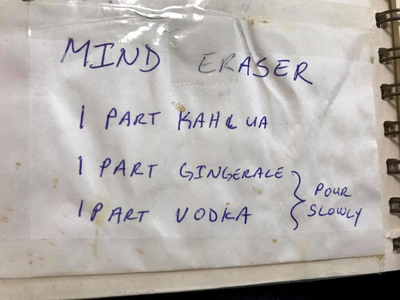 MIND ERASER
1 PART KAHLUA
1 PART GINGERALE
1 PART VODKA
} POUR SLOWLY